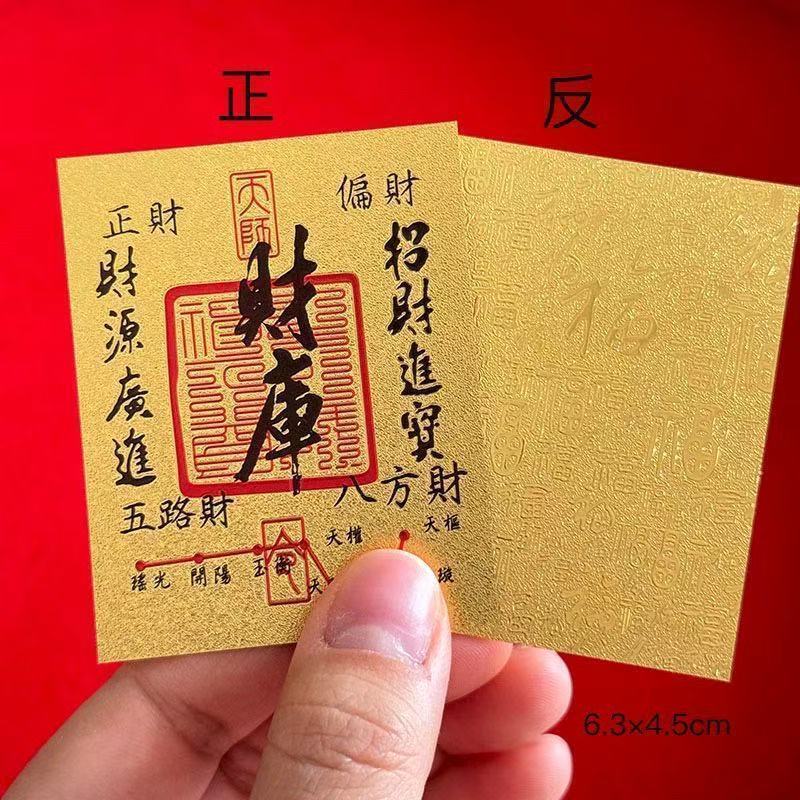 正
反
天師
正財
偏財
財源廣進
財庫
招財進寶
五路財
八方財
天權
天樞
瑤光
開陽
玉衡
令
天
璇
福
6.3×4.5cm